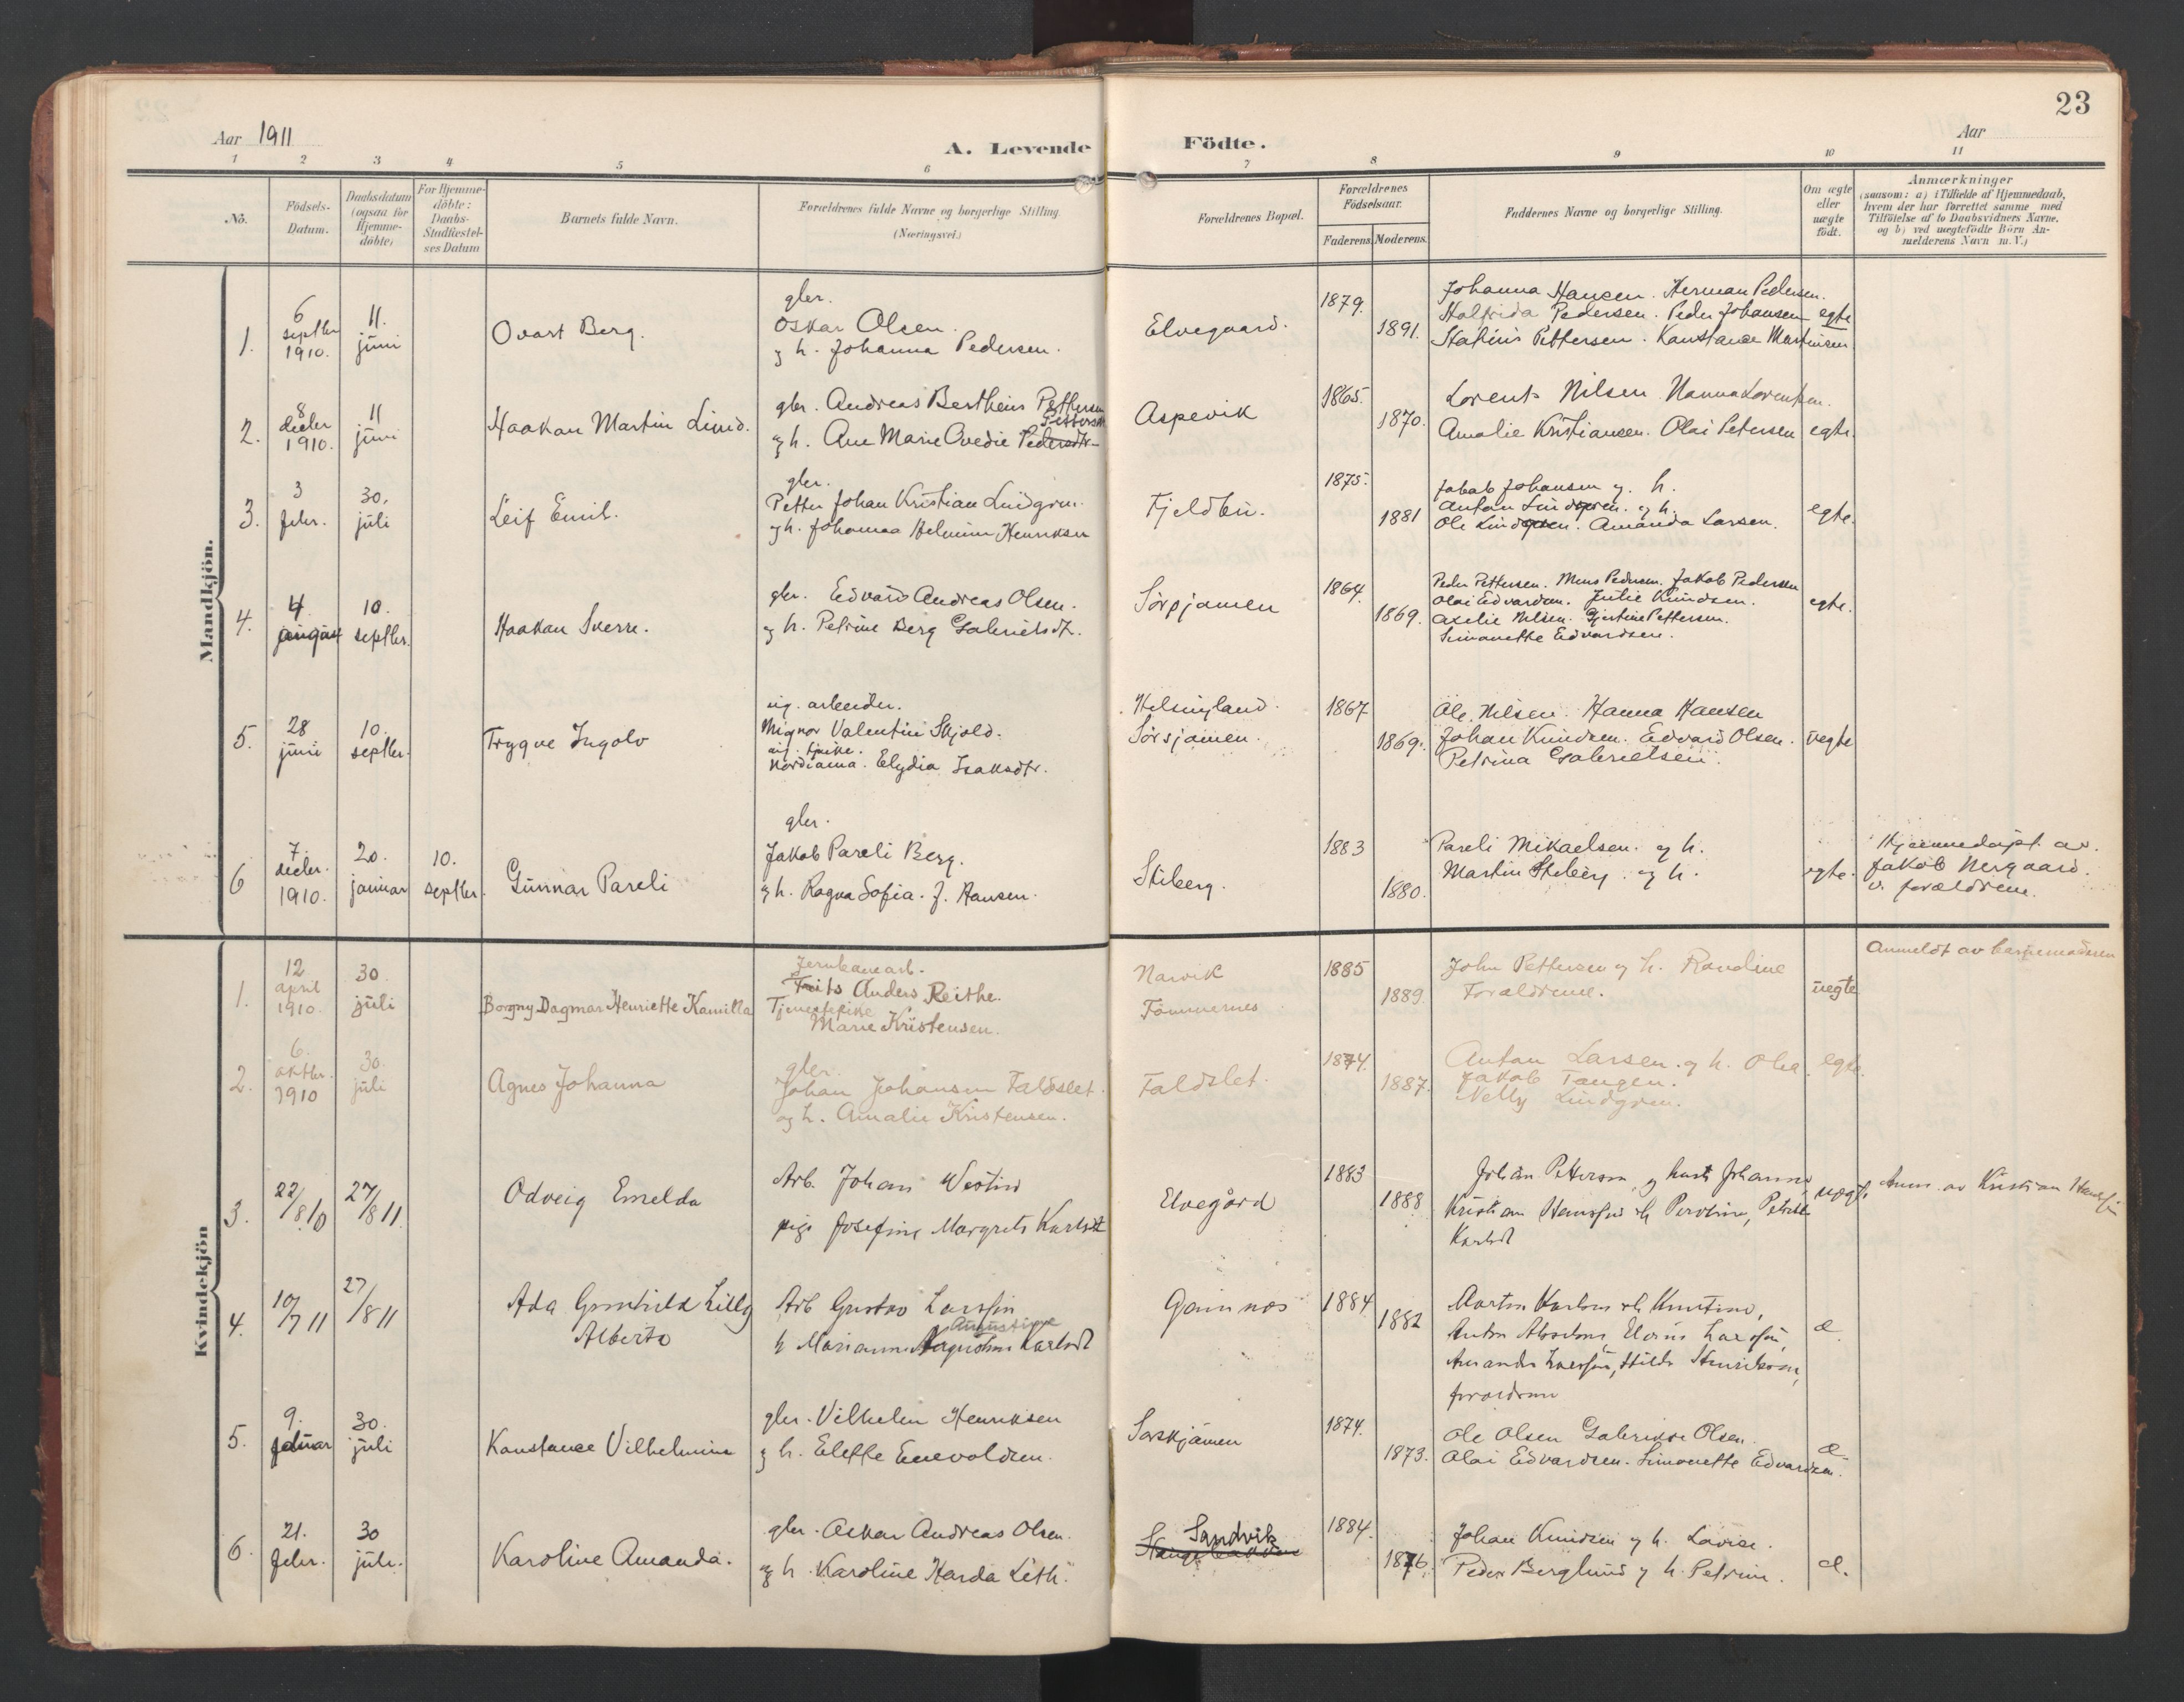 23
Aar 1911
A. Levende Födte.
Aar
1 2 3 4 5 6 7 8 9 10 11
No.
Födsels-Datum.
Daabsdatum (ogsaa for Hjemme-döbte)
For Hjemme-döbte: Daabs-Stadfæstel-ses Datum
Barnets fulde Navn.
Forældrenes fulde Navne og borgerlige Stilling. (Næringsvei.)
Forældrenes Bopæl.
Forældrenes Födselsaar.
Faderens. Moderens.
Faddernes Navne og borgerlige Stilling.
Om ægte eller uægte födt.
Anmærkninger
(saasom: a) i Tilfælde af Hjemmedaab,
hvem der har forrettet samme med
Tilföielse af to Daabsvidners Navne,
og b) ved uægtefödte Börn An-
melderens Navn m. V.)
Mandkjön.
1. 6 septbr 1910. 11. juni
Ovart Berg.
gbr.
Oskar Olsen.
og h. Johanna Pedersen.
Elvegaard.
1879. 1891.
Johanna Hansen. Herman Pedersen.
Halfrida Pedersen. Peder Johansen
Pettersen. Konstanse Martinsen
egte
2. 8 decbr 1910. 11 juni
Haakan Martin Lind.
gbr. Andreas Bertheus Pettersen
Pettersdtr
og h. Ane Marie Ovedie Pedersdtr
Aspevik
1865. 1870.
Lorents Nilsen Hanna Lorentsen.
Amalie Kristiansen. Olai Petersen
egte.
3. 3 febr. 30. juli
Leif Emil.
gbr.
Petter Johan Kristian Lindgren.
og h. Johanna Helmine Henriksen
Fjeldbu.
1875. 1881
Jakob Johansen og h.
Anton Lindgren. og h.
Ole Lindgren. Amanda Larsen.
egte.
4. 4. 10. septbr.
Haakan Sverre.
gbr. Edvard Andreas Olsen.
og h. Petrine Berg Gabrielsdt.
1864. 1869.
Peder Pettersen. Mons Pedersen. Jakob Pedersen
Olai Edvardsen. Julie Knudsen.
Axelie Nilsen. Gjertine Pettersen.
Simonette Edvardsen.
egte.
5. 28 juni 10. septbr.
Trygve Ingolv
ug. arbeider.
Mignor Valentin Skjold.
ug. pike.
Nordiana. Elydia Isaksdtr.
Helsingland.
Sörsjamen.
1867 1869.
Ole Nilsen. Hanna Hansen
Johan Knudsen. Edvard Olsen.
Petrina Gabrielsen.
uegte
6 7. decbr. 1910. 20. januar 10. septbr.
Gunnar Pareli
gbr.
Jakob Pareli Berg.
og h. Ragna Sofia. J. Hansen.
Stiberg.
1883 1880.
Pareli Mikaelsen. og h.
Martin Stiberg. og h.
egte.
Hjemmedøpt av.
Jakob Nergaard.
v. forældrene.
Kvindekjön
1. 12 april 1910. 30 juli
Borgny Dagmar Henriette Kamilla
Jernbanearb.
Frits Anders Reithe.
Tjenestepike
Marie Kristensen.
Narvik
Fammernes
1885 1889.
John Pettersen og h. Randine
Forældrene.
uegte
Anmeldt av barnemoderen
2. 6. oktbr. 1910 30. juli
Agnes Johanna
gbr.
Johan Johansen Faldslet.
og h. Amalie Kristensen.
Faldslet.
1874. 1887.
Anton Larsen. og h. Oha
Jakob Tangen.
Nelly Lindgren.
egte.
3. 22/8 10 27/8 11.
Odveig Emelda
Arb. Johan Westin
pige Josefine Margrete Karlsdt
Elvegård
1883 1888
Johan Petterson, og hust Johanna,
Kristian Hansson
Karlsdt
uægt.
Anm. av Kristian Hansson
4. 10/7 11 27/8 11
Ada Gunhild Lilly
Alberta
Arb Gustav Larsson
Augustine
h Marianne Karlsdt
Gamnes
1884 1882
Anton
Amanda Larsson, Hilda Henrikson,
æ.
5. 9. februar 30. juli
Konstanse Vilhelmine
gbr. Vilhelm Henriksen
og h. Elette Enevoldsen.
Sørskjämen
1874. 1873.
Ole Olsen Gabrikke Olsen.
Olai Edvardsen. Simonette Edvardsen.
æ
6. 21. febr. 30 juli.
Karoline Amanda.
gbr. Askar Andreas Olsen.
og h. Karoline Harda Leth.
Sandvik
1884. 1876.
Johan Knudsen og h. Lovise.
Peder Berglund og h. Petrine.
æ.